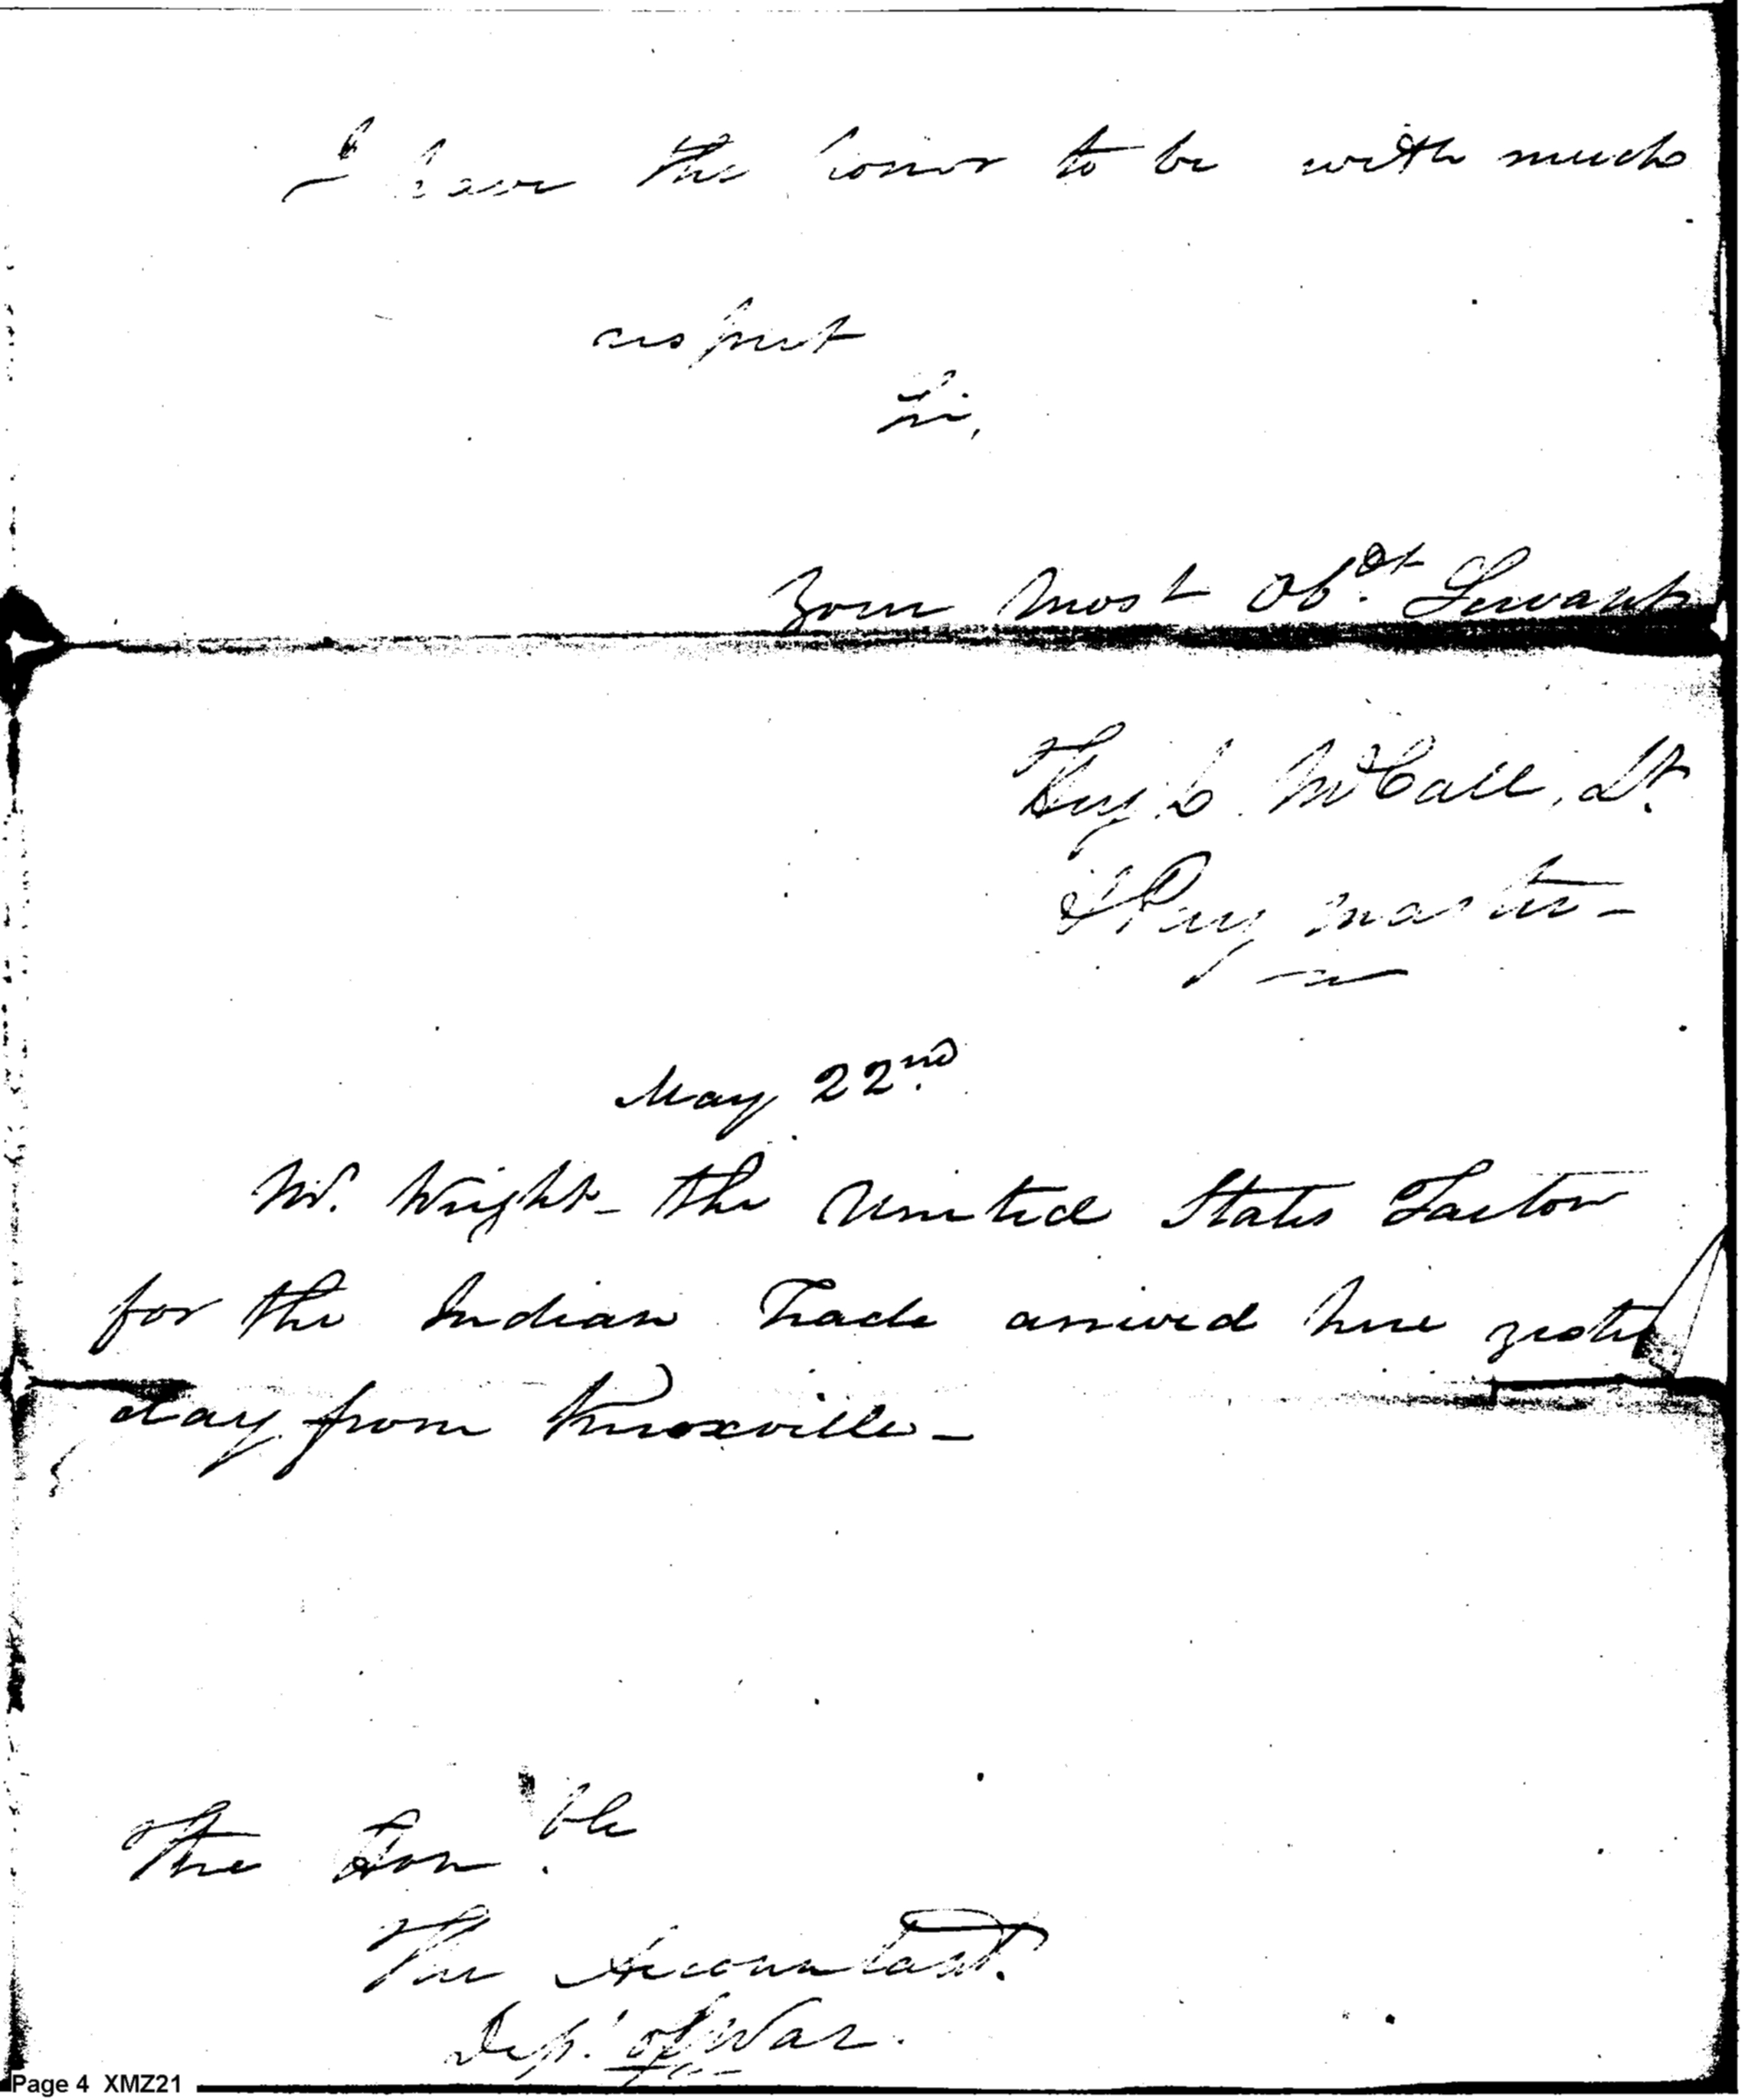 I have the honor to be with much
respect
Sir,
Your most Obdt. Servant
Hugh McCall, Lt.
& Pay master -
May 22nd.
Mr. Wright - the United States Factor
for the Indian Trade arrived here yester
day from Knoxville -
The Honble.
The Accountant.
Dept. of War.
Page 4 XMZ21